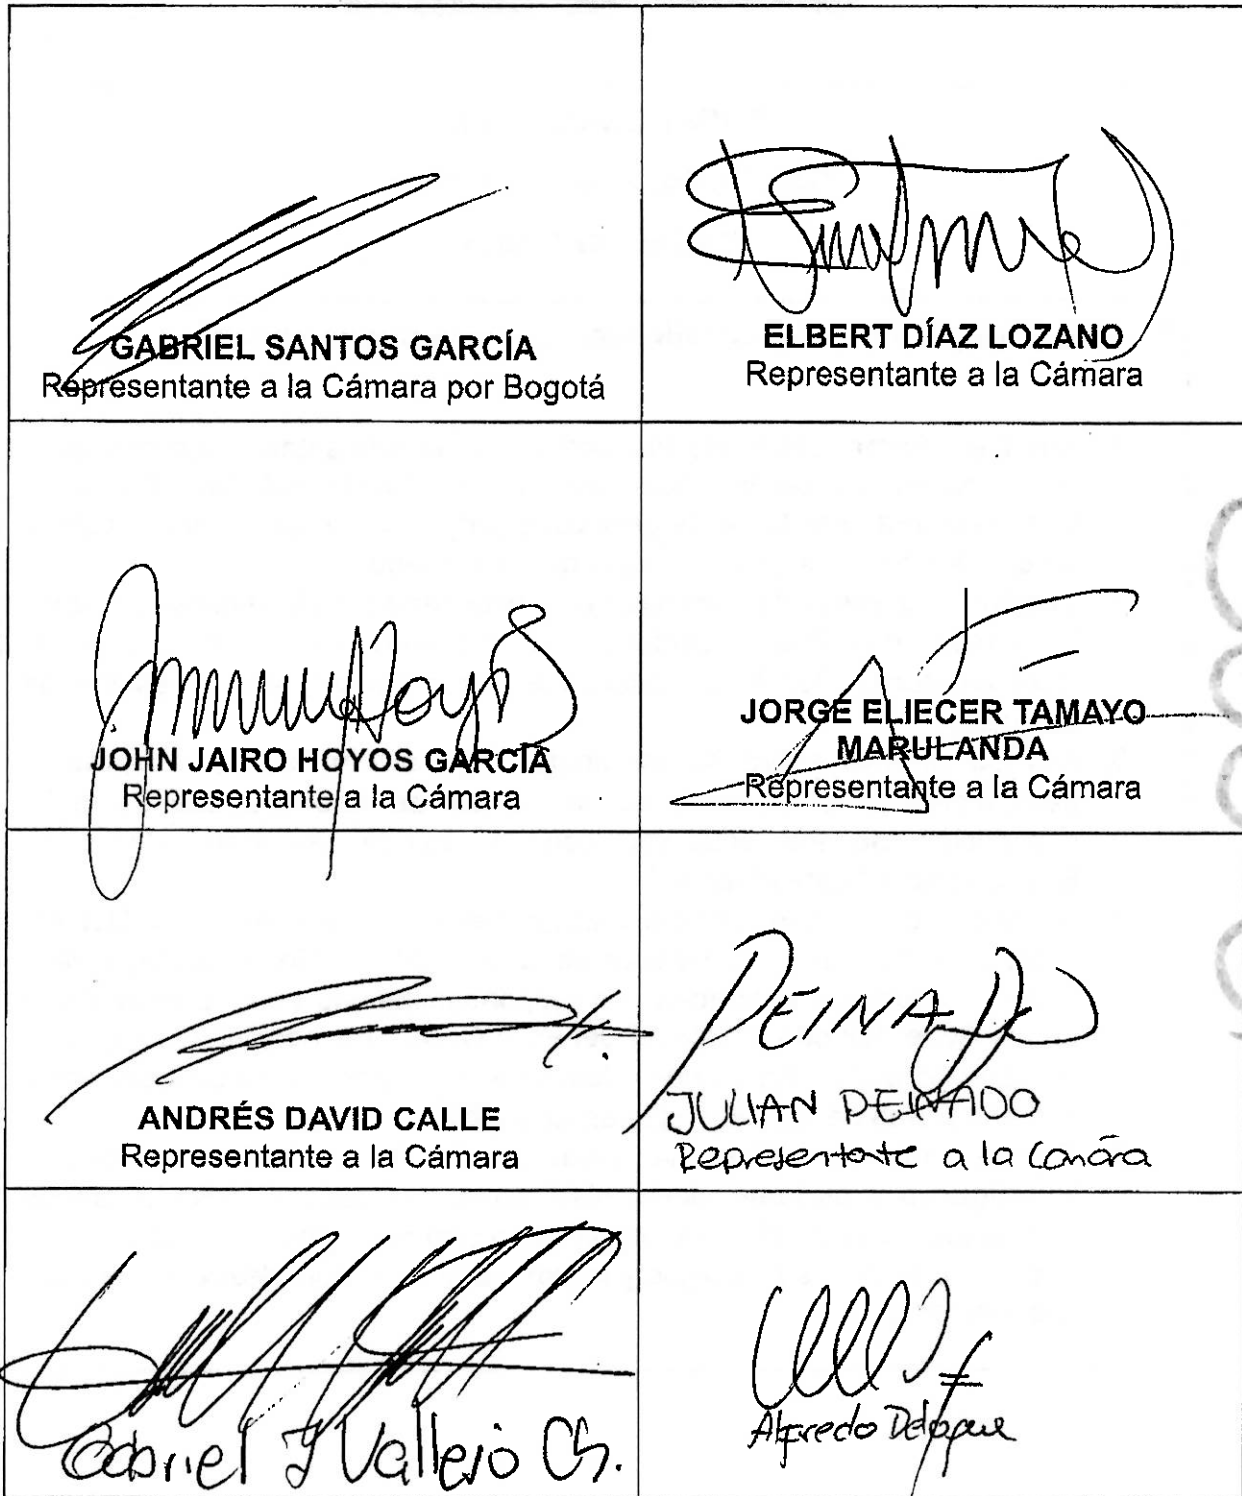 GABRIEL SANTOS GARCÍA
Representante a la Cámara por Bogotá
ELBERT DÍAZ LOZANO
Representante a la Cámara
JOHN JAIRO HOYOS GARCÍA
Representante a la Cámara
JORGE ELIECER TAMAYO
MARULANDA
Representante a la Cámara
ANDRÉS DAVID CALLE
Representante a la Cámara
PEINADO
JULIAN PEINADO
Representante a la Camára
Gabriel J Vallejo Ch.
Alfredo Deluque